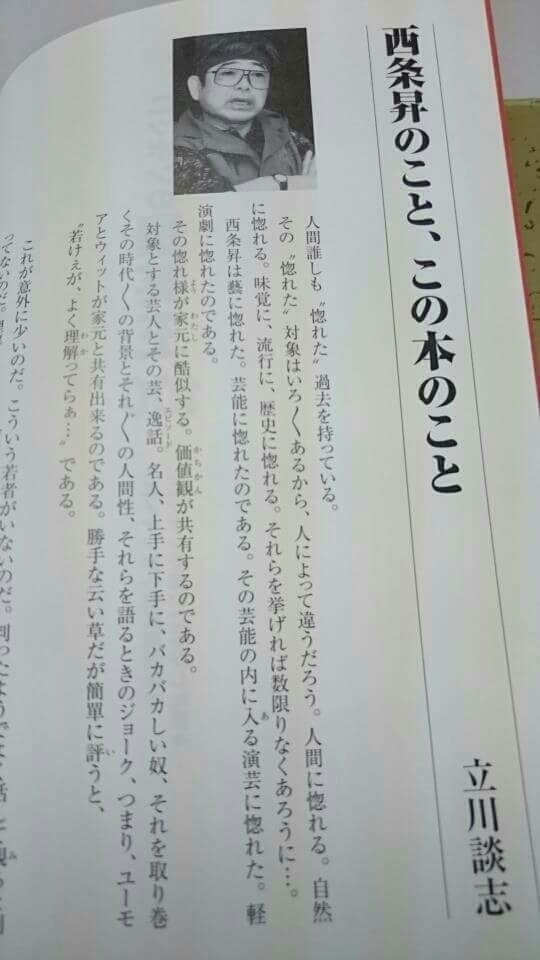 西条昇のこと、この本のこと
立川談志
人間誰しも〝惚れた〟過去を持っている。
その〝惚れた〟対象はいろ〱あるから、人によって違うだろう。人間に惚れる。自然
に惚れる。味覚に、流行に、歴史に惚れる。それらを挙げれば数限りなくあろうに…。
西条昇は藝に惚れた。芸能に惚れたのである。その芸能の内に入る演芸に惚れた。軽
演劇に惚れたのである。
その惚れ様が家元に酷似する。価値観が共有するのである。
対象とする芸人とその芸、逸話。名人、上手に下手に、バカバカしい奴、それを取り巻
くその時代〱の背景とそれ〲の人間性、それらを語るときのジョーク、つまり、ユーモ
アとウィットが家元と共有出来るのである。勝手な云い草だが簡單に評うと、
〝若けぇが、よく理解ってらぁ…〟である。
これが意外に少いのだ。こういう若者がいないのだ。判ったようでよく話
ってないのだ。